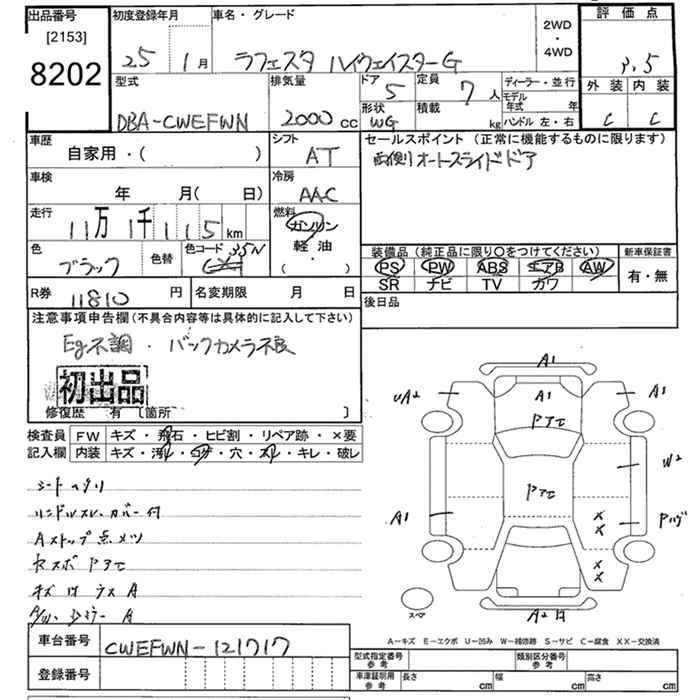 出品番号
[2153]
8202
初度登録年月
25 1月
車名・グレード
ラフェスタ ハイウェイスターG
2WD
・
4WD
評価点
3.5
外装 内装
C C
型式
DBA-CWEFWN
排気量
2000 cc
ドア 5
形状 WG
定員 7人
積載 kg
ディーラー・並行
モデル年式 年
ハンドル 左・右
車歴
自家用・( )
シフト
AT
セールスポイント (正常に機能するものに限ります)
両側オートスライドドア
車検
年 月( 日)
冷房
AAC
走行
11万1千115km
燃料
ガソリン
軽油
( ・ )
色
ブラック
色替
色コード 35N
装備品 (純正品に限り○をつけてください)
PS PW ABS エアB AW
SR ナビ TV カワ
新車保証書
有・無
R券 11810円
名変期限 月 日
後日品
注意事項申告欄(不具合内容等は具体的に記入して下さい)
Eg不調・バックカメラ不良
初出品
修復歴 有〔箇所 〕
検査員記入欄
FW キズ・飛石・ヒビ割・リペア跡・×要
内装 キズ・汚れ・コゲ・穴・スレ・キレ・破レ
シートヘタリ
ハンドルスレ、カバー付
Aストップ点メツ
A/W、ドアミラー A
A1
UA2
A1
A1
アセ
W2
アセ
A1
××
××
スペア
A2
A-キズ E-エクボ U-凹み W-補修跡 S-サビ C-腐食 XX-交換済
車台番号
CWEFWN-121717
登録番号
型式指定番号 参考
類別区分番号 参考
車庫証明用 参考
長さ cm
幅 cm
高さ cm